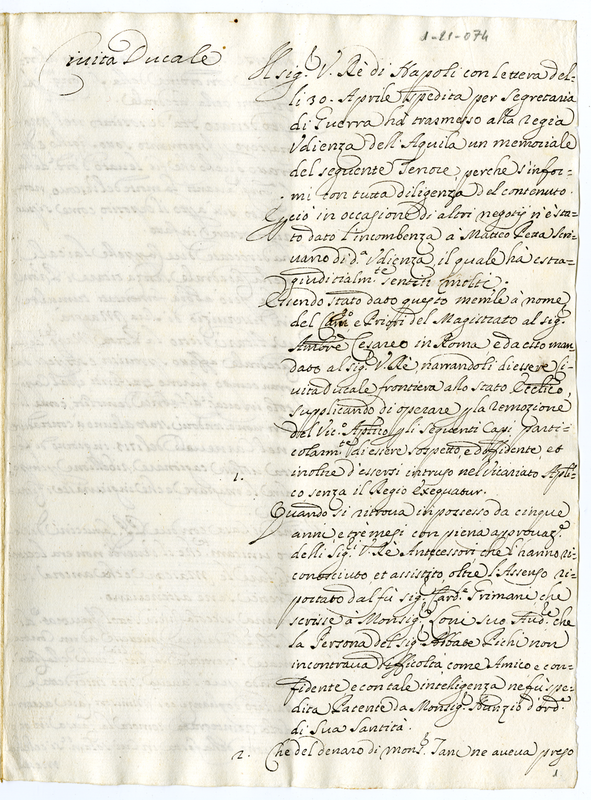 1-21-074
Civita Ducale
Il sig.r V. Rè di Napoli con lettera del-
li 30. Aprile spedita per Segretaria
di Guerra hà trasmesso alla regia
Udienza dell'Aquila un memoriale
del seguente Tenore, perche s'infor-
mi con tutta diligenza del contenuto.
E ciò in occasione di altri negotij n'è sta-
to dato l'incombenza à Matteo Scri-
uano di d.a Udienza il quale hà estra-
giudicialm.te sentiti molti.
Essendo stato dato questo mem.le à nome
del Cam.o e Priori del Magistrato al sig.
Amb.re Cesareo in Roma, e da esso man-
dato al sig.r V. Rè narrandoli di essere Ci-
uita Ducale frontiera allo Stato Eccl.co,
supplicando di operare p la remozione
del Vic.o Ap.lico p li seguenti Capi parti-
colarm.te di essere sospetto, e diffidente, et
1. inoltre d'essersi intruso nel Vicariato Apli-
co senza il Regio exequatur.
Quando si ritrova in possesso da cinque
anni e trè mesi con piena approuaz.e
delli Sig.ri V. Rè Antecessori che l'hanno ri-
conosciuto et assistito, oltre l'Assenso ri-
portato dal fù sig.r Card.l Grimani che
scrisse à Monsig.r suo Aud.re che
la Persona del sig.r Abbate Pichi non
incontraua difficoltà come Amico e con-
fidente e con tale intelligenza ne fù spe-
dita Patente da Monsig.r Nunzio d'ord.e
di Sua Santità.
2. Che del denaro di mons.r ne aveva preso
1